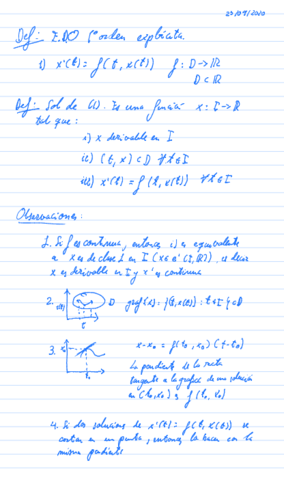 23/09/2020
Def: E.D.O 1º orden explícita.
1) x'(t) = f(t, x(t)) f: D -> ℝ
D ⊂ ℝ
Def: Sol de (1). Es una función x: I -> ℝ
tal que:
i) x derivable en I
ii) (t, x) ⊂ D ∀t∈I
iii) x'(t) = f(t, x(t)) ∀t∈I
Observaciones:
1. Si f es continua, entonces i) es equivalente
a x es de clase 1 en I (x ∈ C¹(I, ℝ)), es decir
x es derivable en I y x' es continua
2. D graf(x): {(t, x(t)) : t∈I} ⊂ D
3. x - x₀ = f(t₀, x₀)(t - t₀)
x₀
t₀
La pendiente de la recta
tangente a la gráfica de una solución
en (t₀, x₀) es f(t₀, x₀)
4. Si dos soluciones de x'(t) = f(t, x(t)) se
cortan en un punto, entonces lo hacen con la
misma pendiente